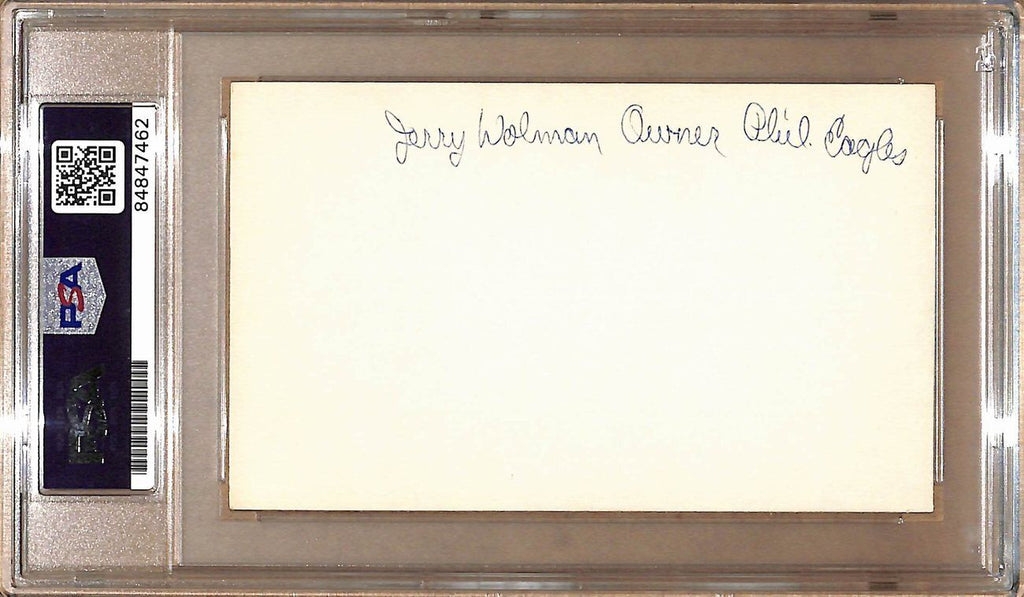 Jerry Wolman Owner Phil. Eagles
84847462
PSA
PSA